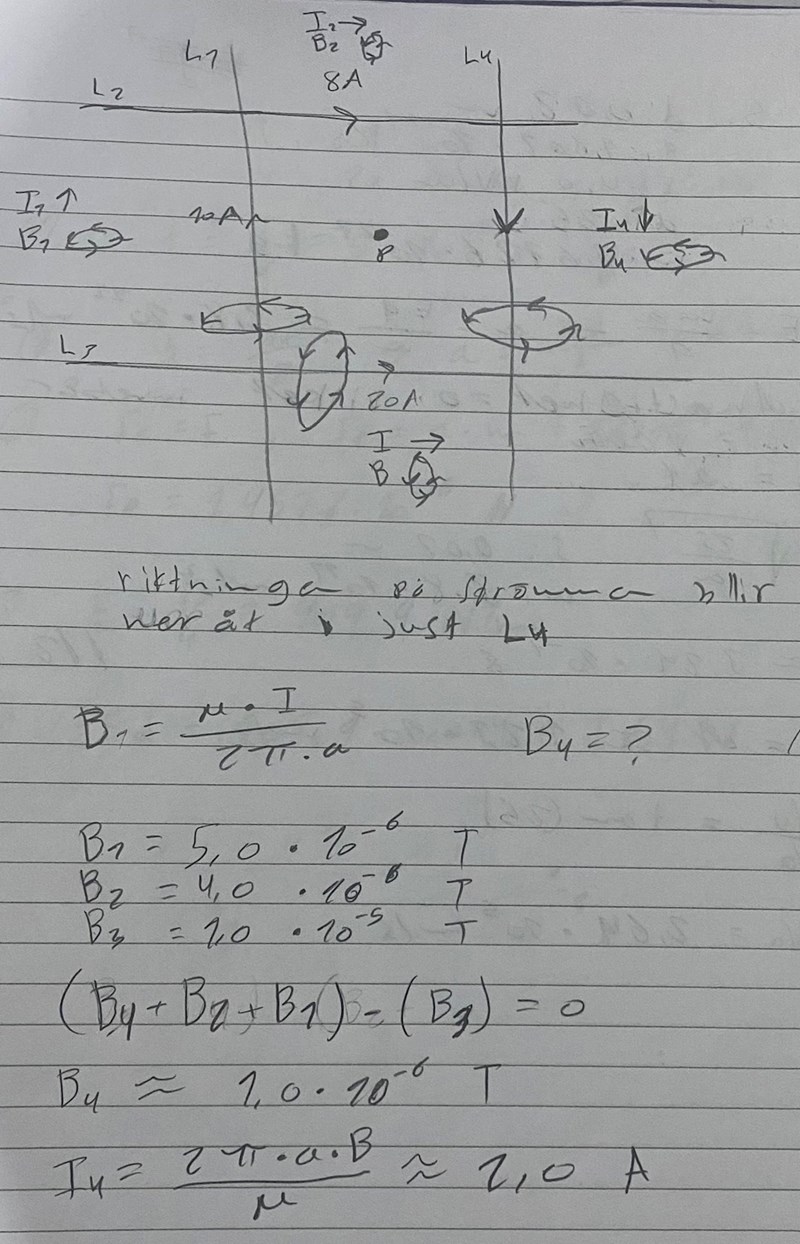 I₂ →
L₁ B₂ L4
8A
L₂
I₁ ↑ 10A P I4 ↓
B₁ B4
L₃
20A
I →
B
riktningen på strömmen blir
neråt i just L4
B₁ = μ · I / 2π · a B4 = ?
B₁ = 5,0 · 10⁻⁶ T
B₂ = 4,0 · 10⁻⁶ T
B₃ = 1,0 · 10⁻⁵ T
(B4 + B₂ + B₁) - (B₃) = 0
B4 ≈ 1,0 · 10⁻⁶ T
I4 = 2π · a · B / μ ≈ 2,0 A